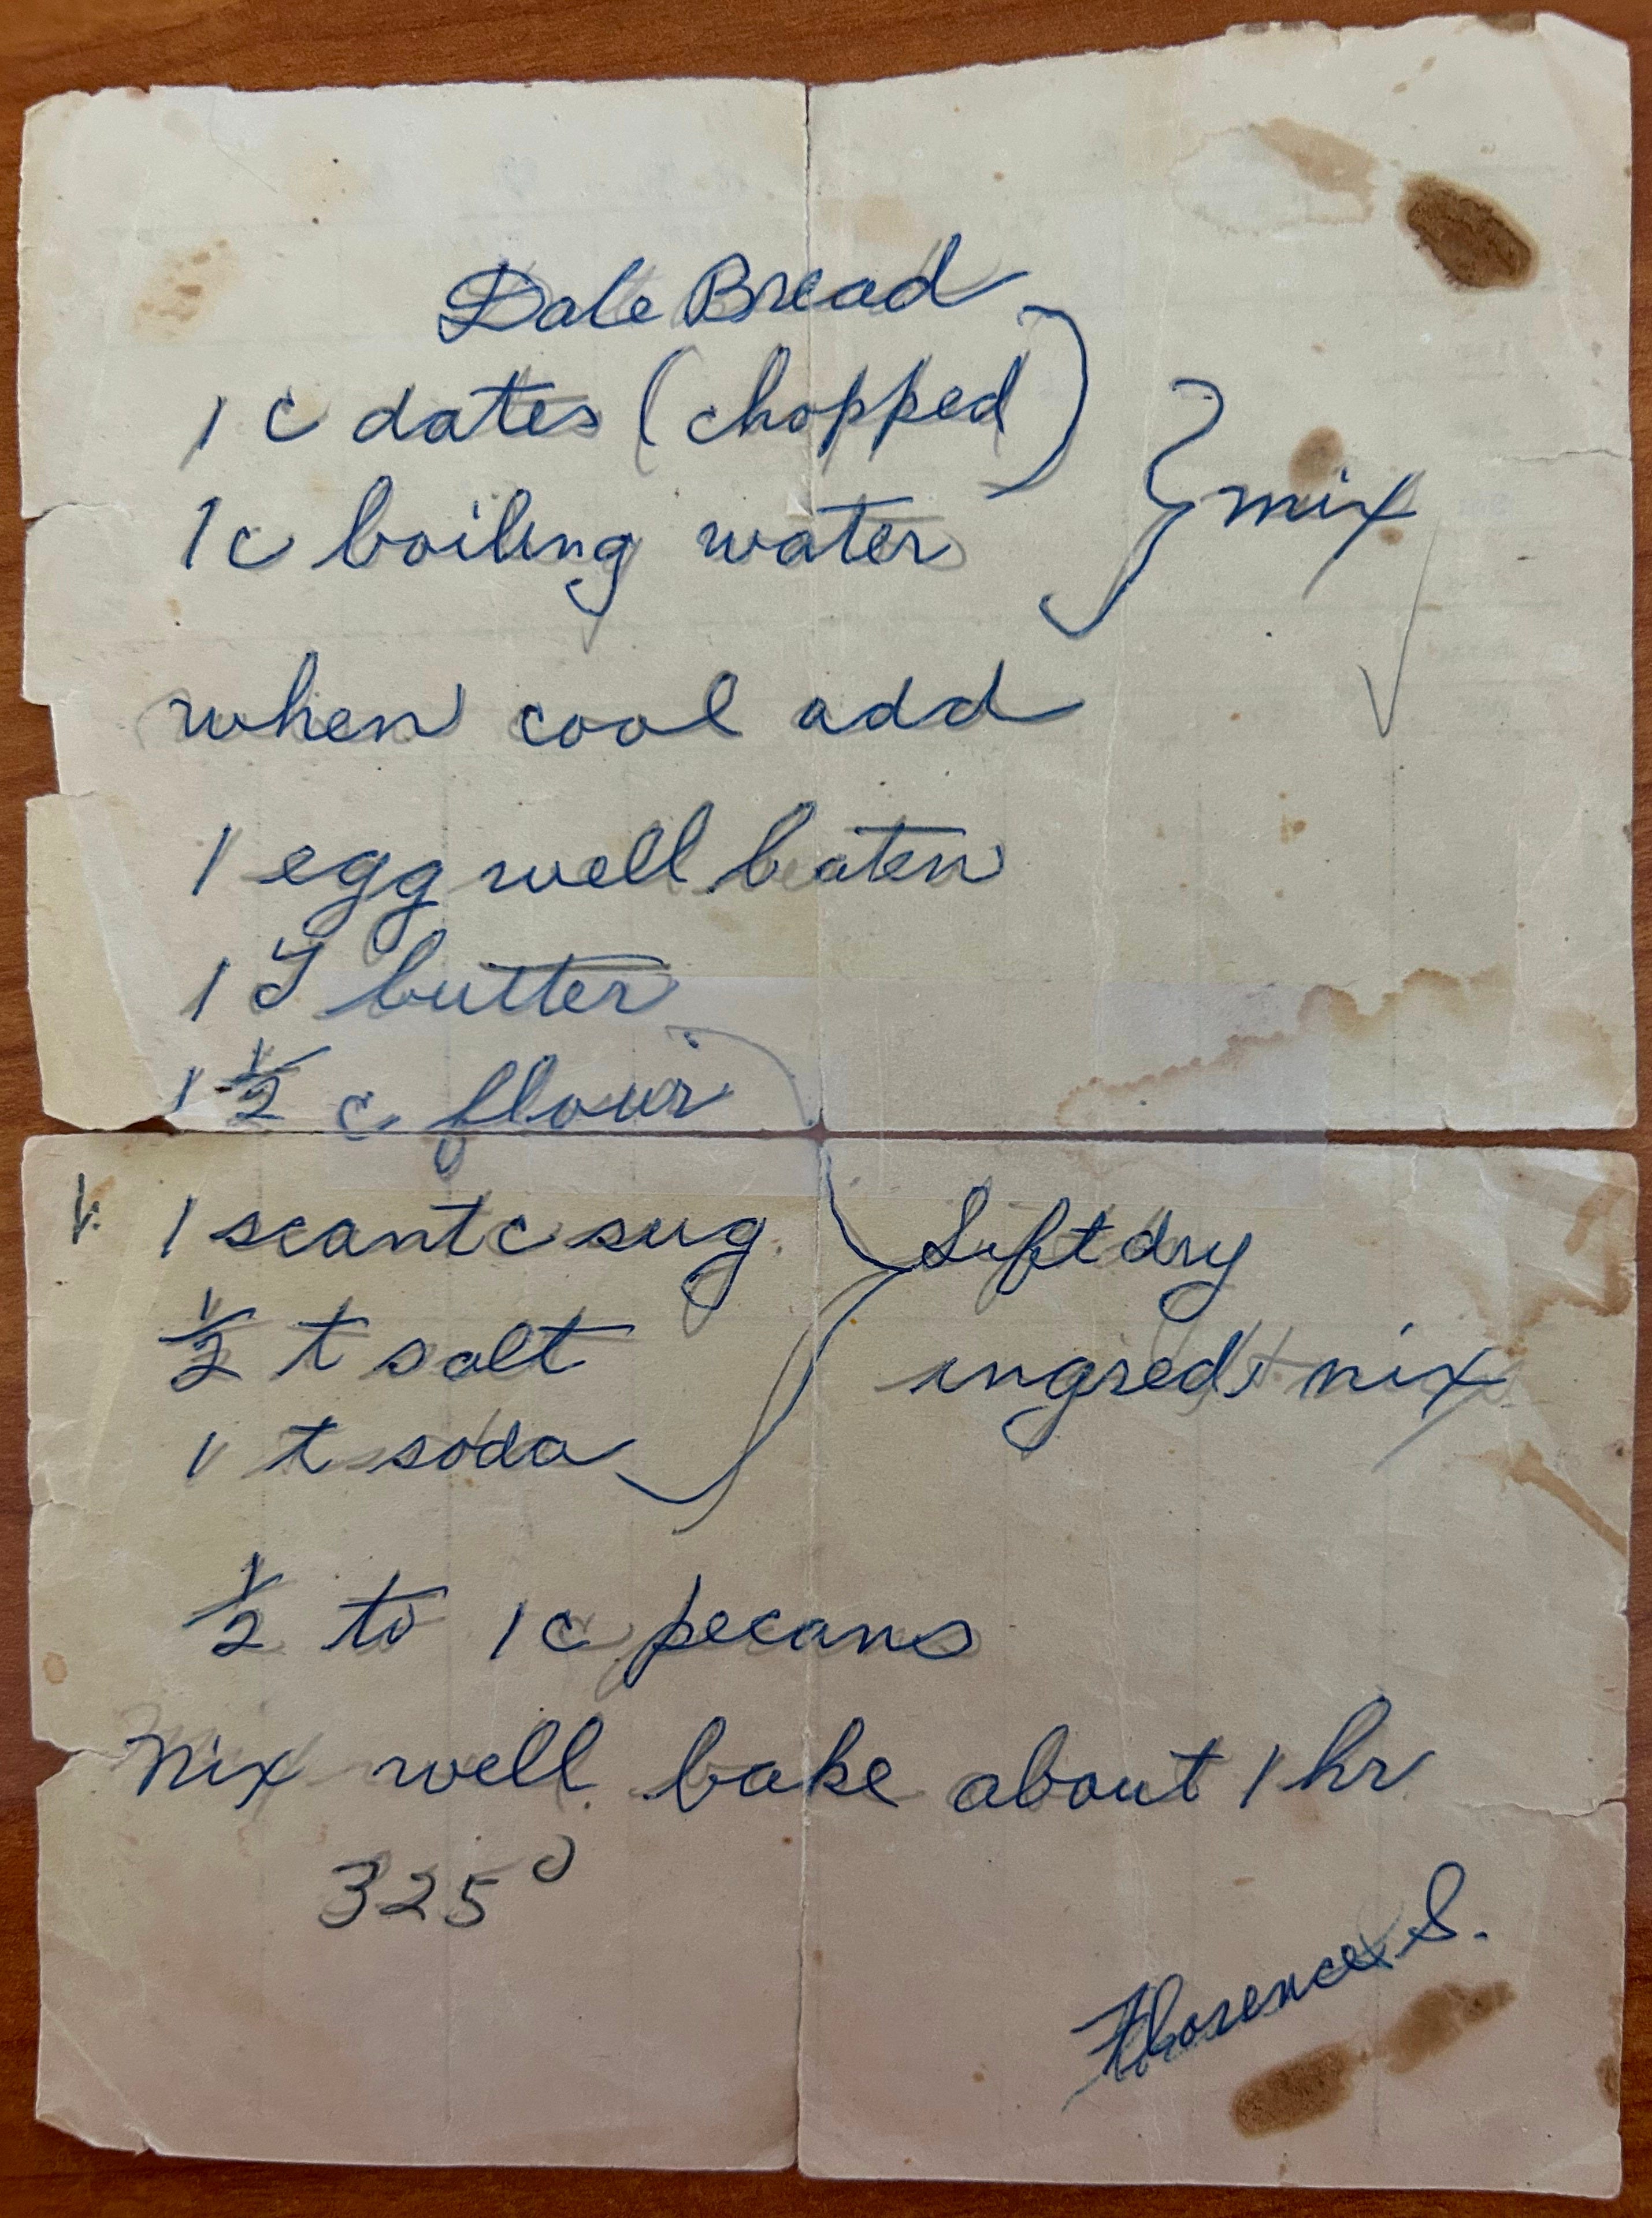 Date Bread
1 c dates (chopped)
1 c boiling water } mix
when cool add
1 egg well beaten
1 T butter
1 1/2 c flour
1 scant c sug.
1/2 t salt
1 t soda
} Sift dry
ingred + mix
1/2 to 1 c pecans
Mix well bake about 1 hr
325°
Florence S.